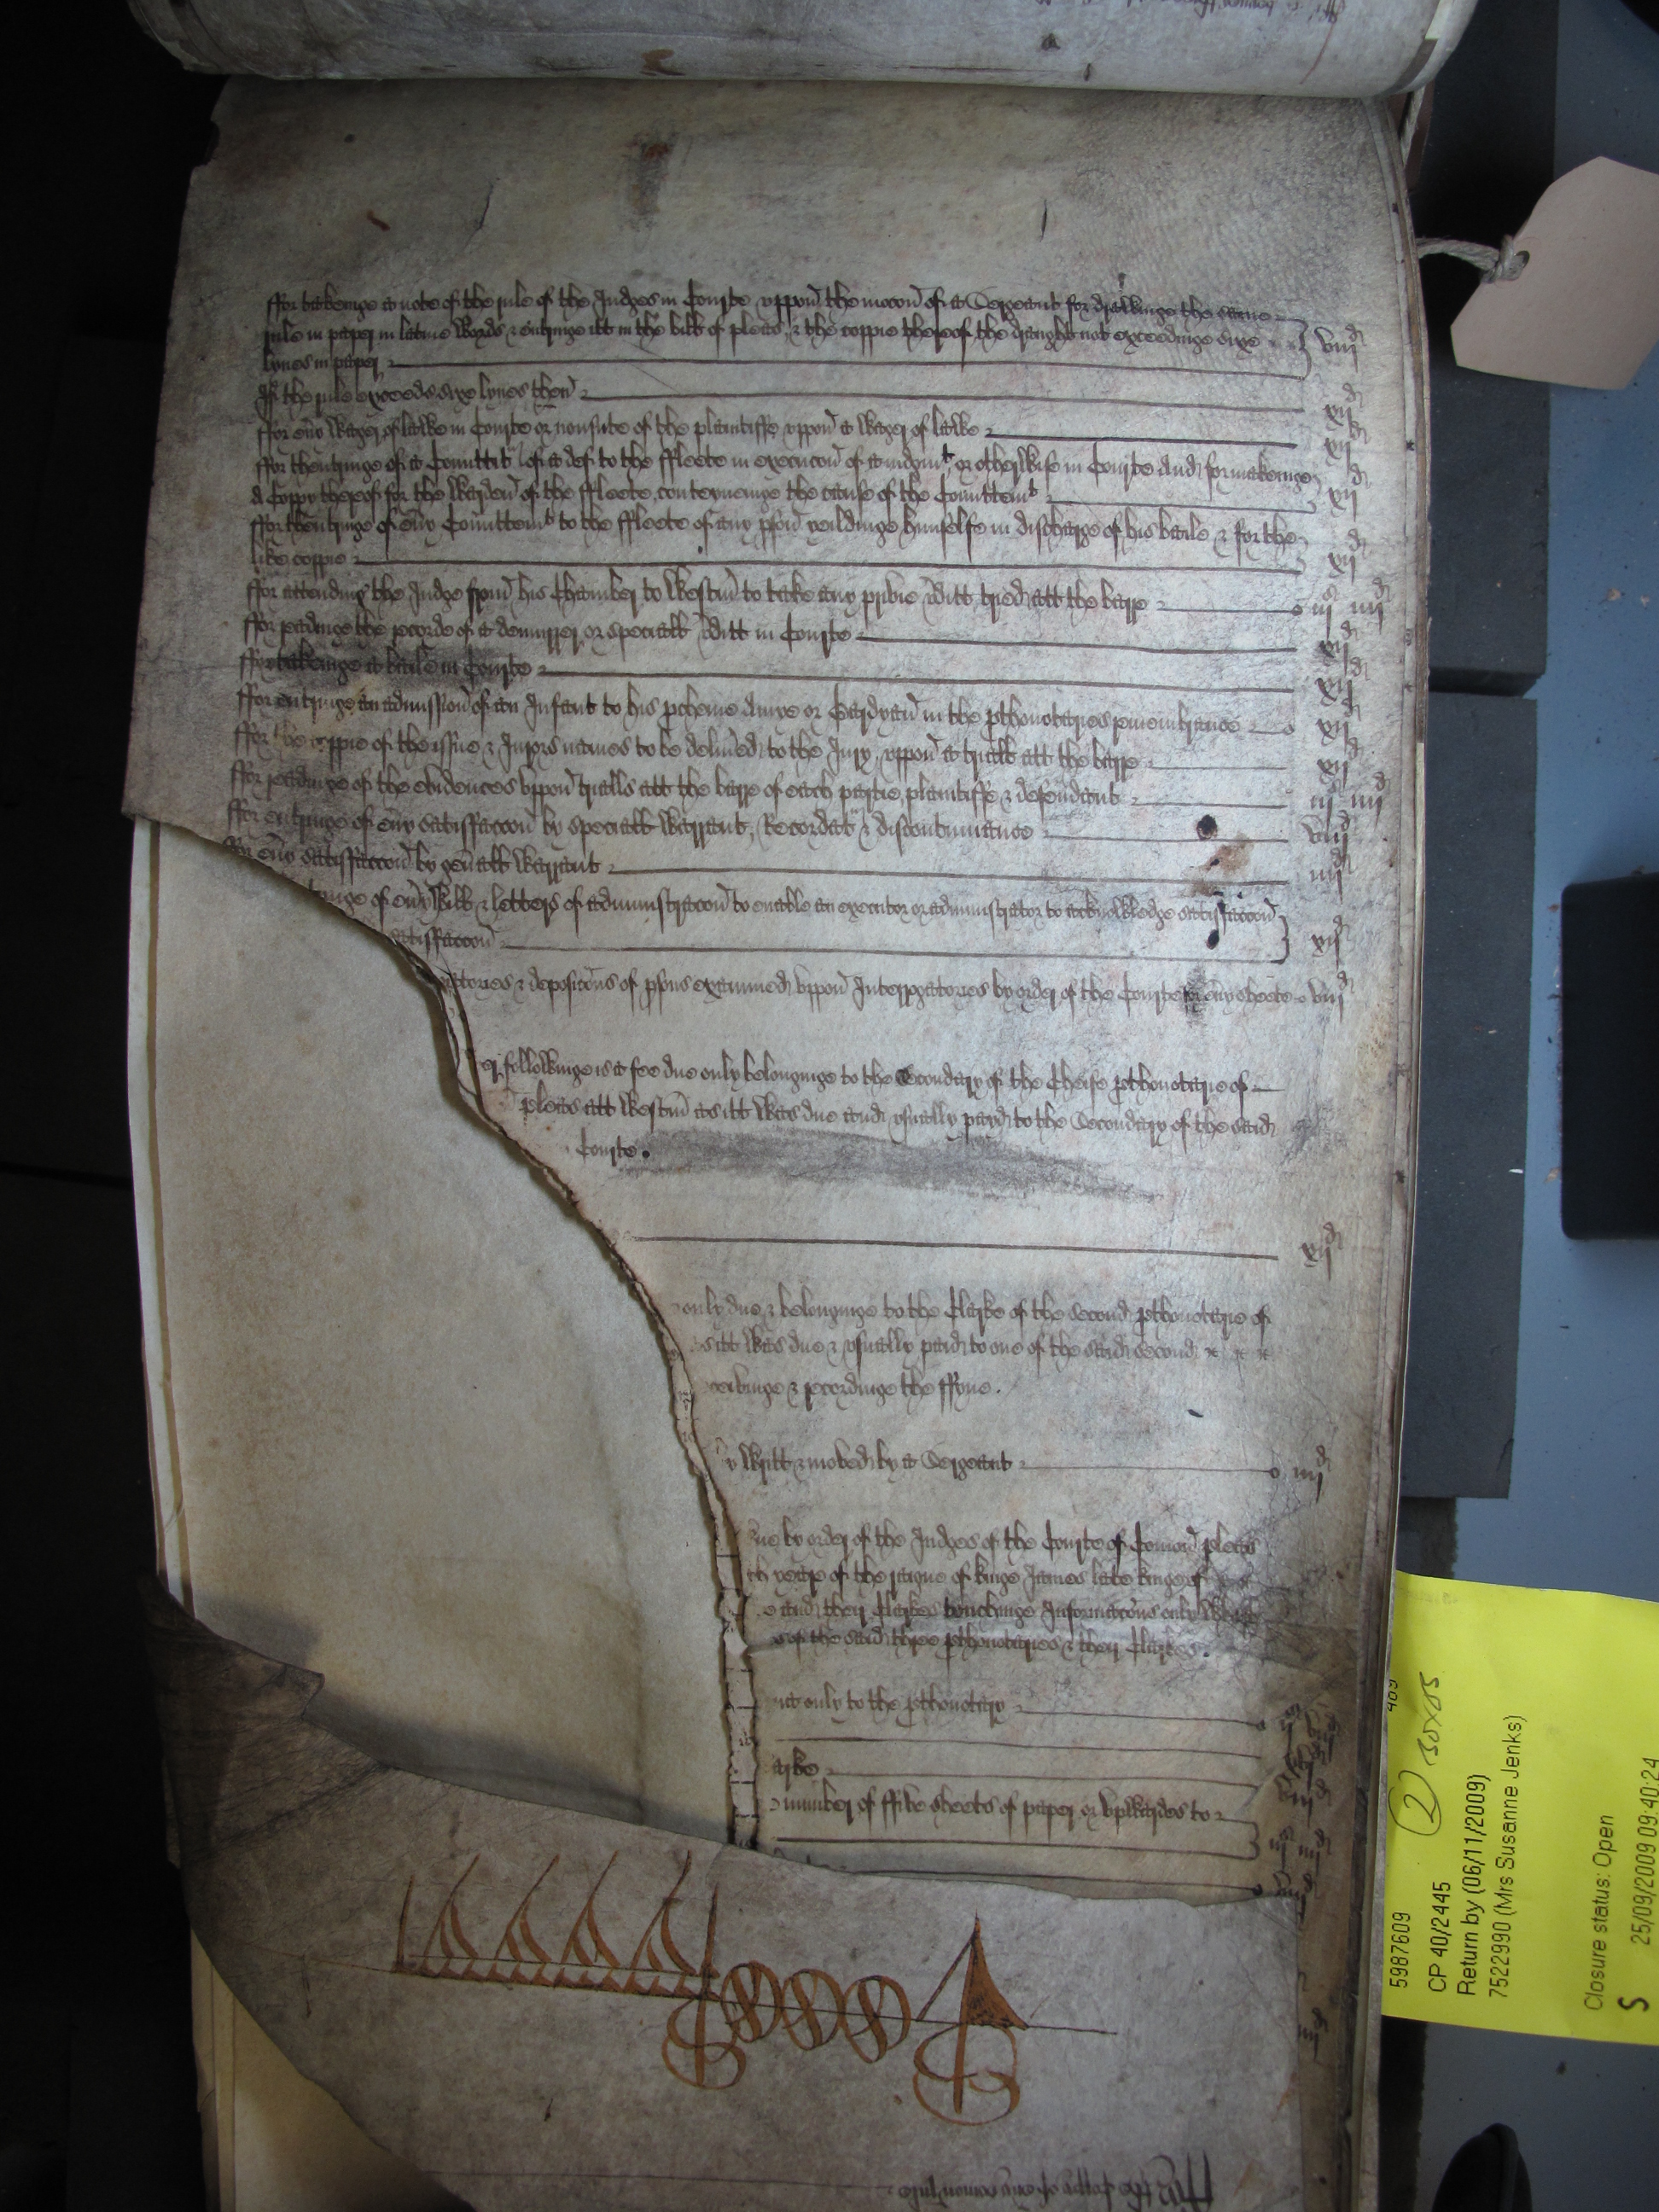 ffor takeinge a note of the rule of the Judges in Courte uppon the mocon of a Sergeant for drawinge the same
rule in paper in latine words & entringe itt in the bill of pleas, & the coppie thereof the draught not exceedinge sixe viijd
lynes in paper
If the rule exceeds sixe lynes then xijd
ffor eny wager of lawe in Courte or nonsute of the plaintiffe uppon a wager of lawe xijd
ffor thentringe of a Committit of a def to the ffleete in execucon of a iudgmt, or otherwise in Courte and for makeinge
a Coppy thereof for the Warden of the ffleete, conteyneinge the cause of the Committemt xijd
ffor thentringe of eny Committemt to the ffleete of any pson yeildinge himselfe in discharge of his baile & for the
like coppie xijd
ffor attending the Judge from his Chamber to Westm to take any privie Vditt tried att the barre iijs iiijd
ffor readinge the recorde of a demurrer or speciall Vditt in Courte xijd
ffor takeinge a baile in Courte xijd
ffor entringe an admission of an Infant to his pcheine Amye or Gardyan in the pthonotaries remembrance xijd
ffor the coppie of the issue & Jurors names to be delived to the Jury, uppon a triall att the barre xijd
ffor readinge of the evidences uppon trialls att the barre of each partie, plaintiffe & defendant iijs iiijd
ffor entringe of eny satisfaccon by speciall warrant, Recordat & discontinuance viijd
ffor eny satisfaccon by genall warrant iiijd
tringe of eny Will & letters of administracon to enable an executor or administrator to acknowledge satisfaccon
satisfaccon xijd
atories & depositons of psons examined uppon Interrogatories by order of the Courte for eny sheete viijd
er followinge is a fee due only belonginge to the Secondary of the Cheife pthonotarie of
pleas att Westm as itt was due and usually payd to the Secondary of the said
Courte.
xijd
only due & belonginge to the Clarke of the second pthonotarie of
s itt was due & usually paid to one of the said second
ceivinge & recordinge the ffyne.
y writt & moved by a Sergeant iiijd
ue by order of the Judges of the Courte of Comon pleas
th yeare of the raigne of kinge James late kinge of
e and their Clarkes touchinge Informacons only
s of the said three pthonotaries & their Clarkes.
nt only to the pthonotary
arke
number of ffive sheets of paper or upwardes to
5987609
CP 40/2445
Return by (06/11/2009)
7522990 (Mrs Susanne Jenks)
Closure status: Open
S 25/09/2009 09:40:24
489
2